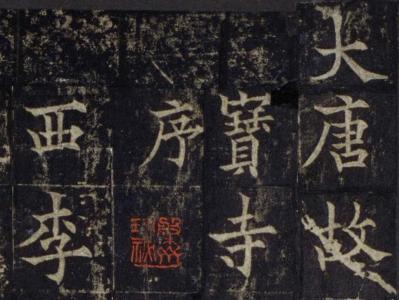 大唐故
寶寺
序
西李